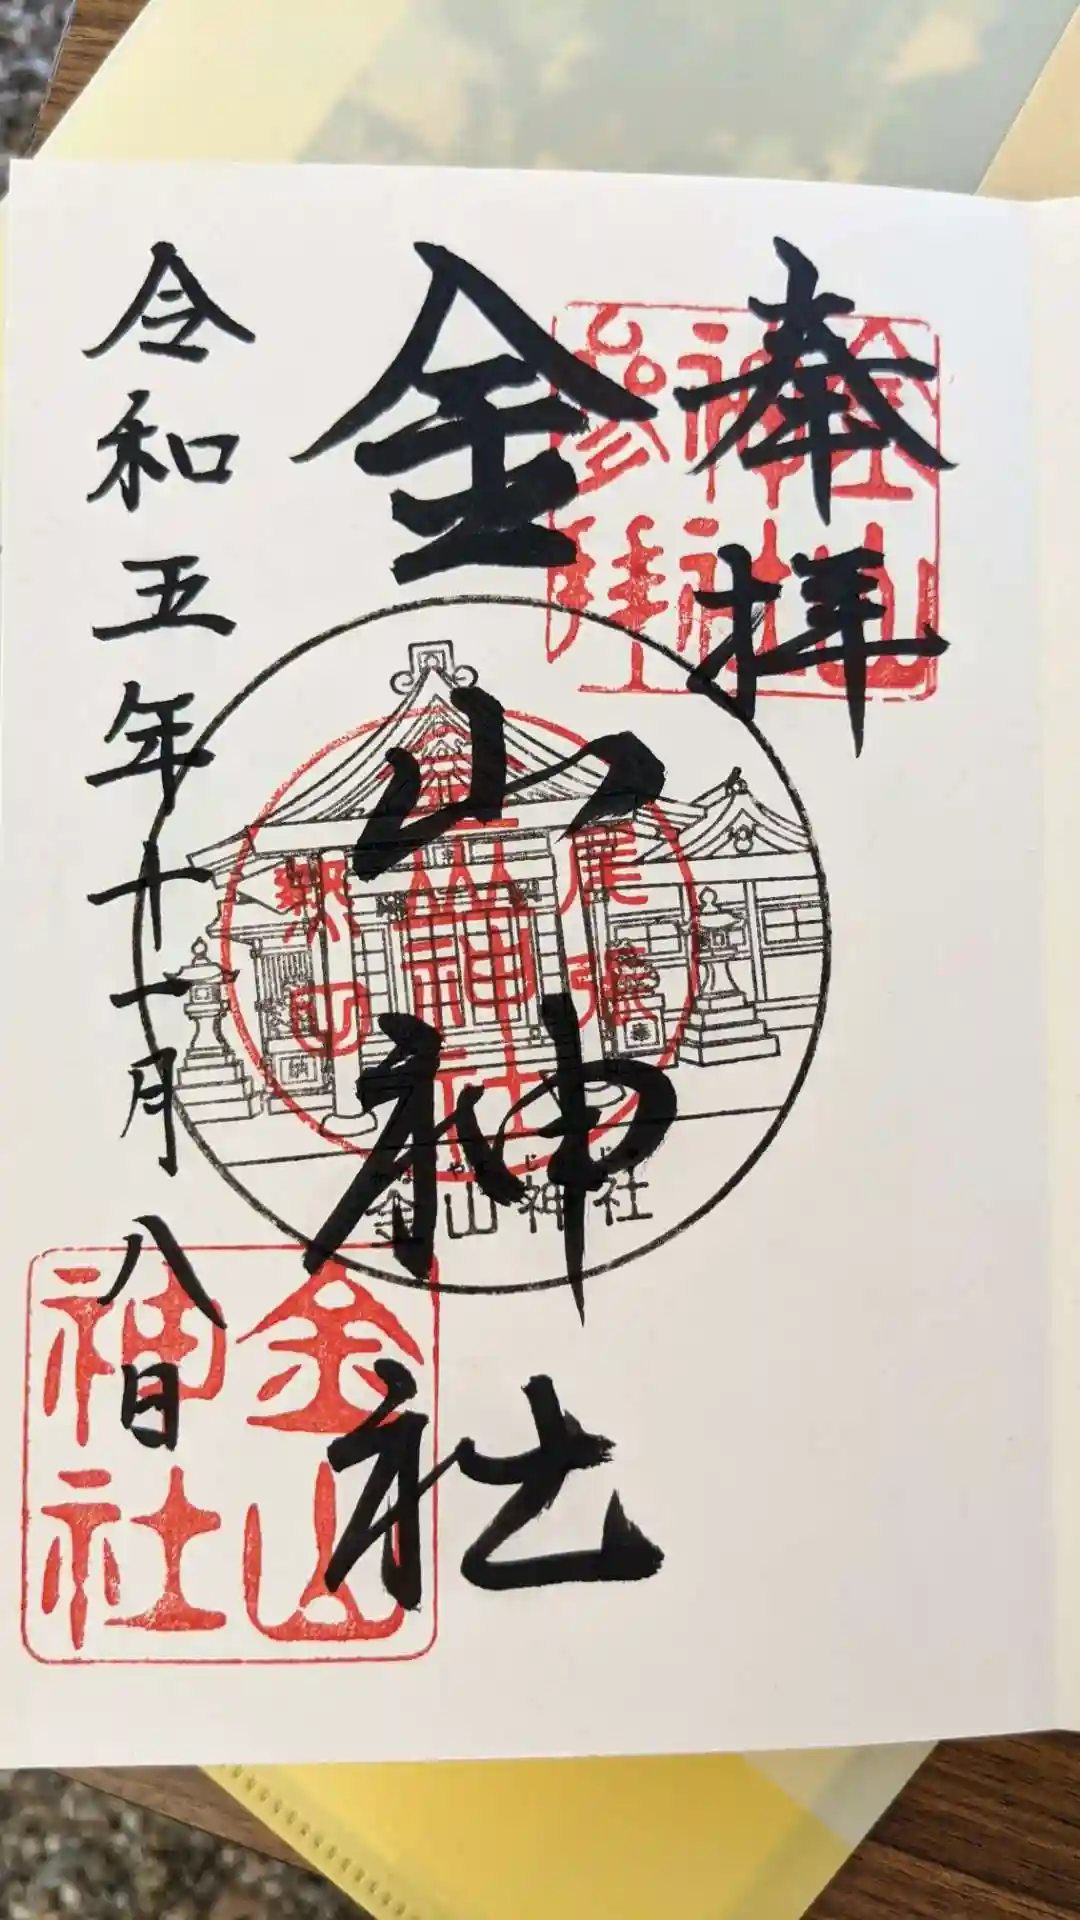 奉拝
金山神社
参拝
金山神社
尾張
金山神社
熱田
奉
納
金山神社
金山神社
令和五年十一月八日